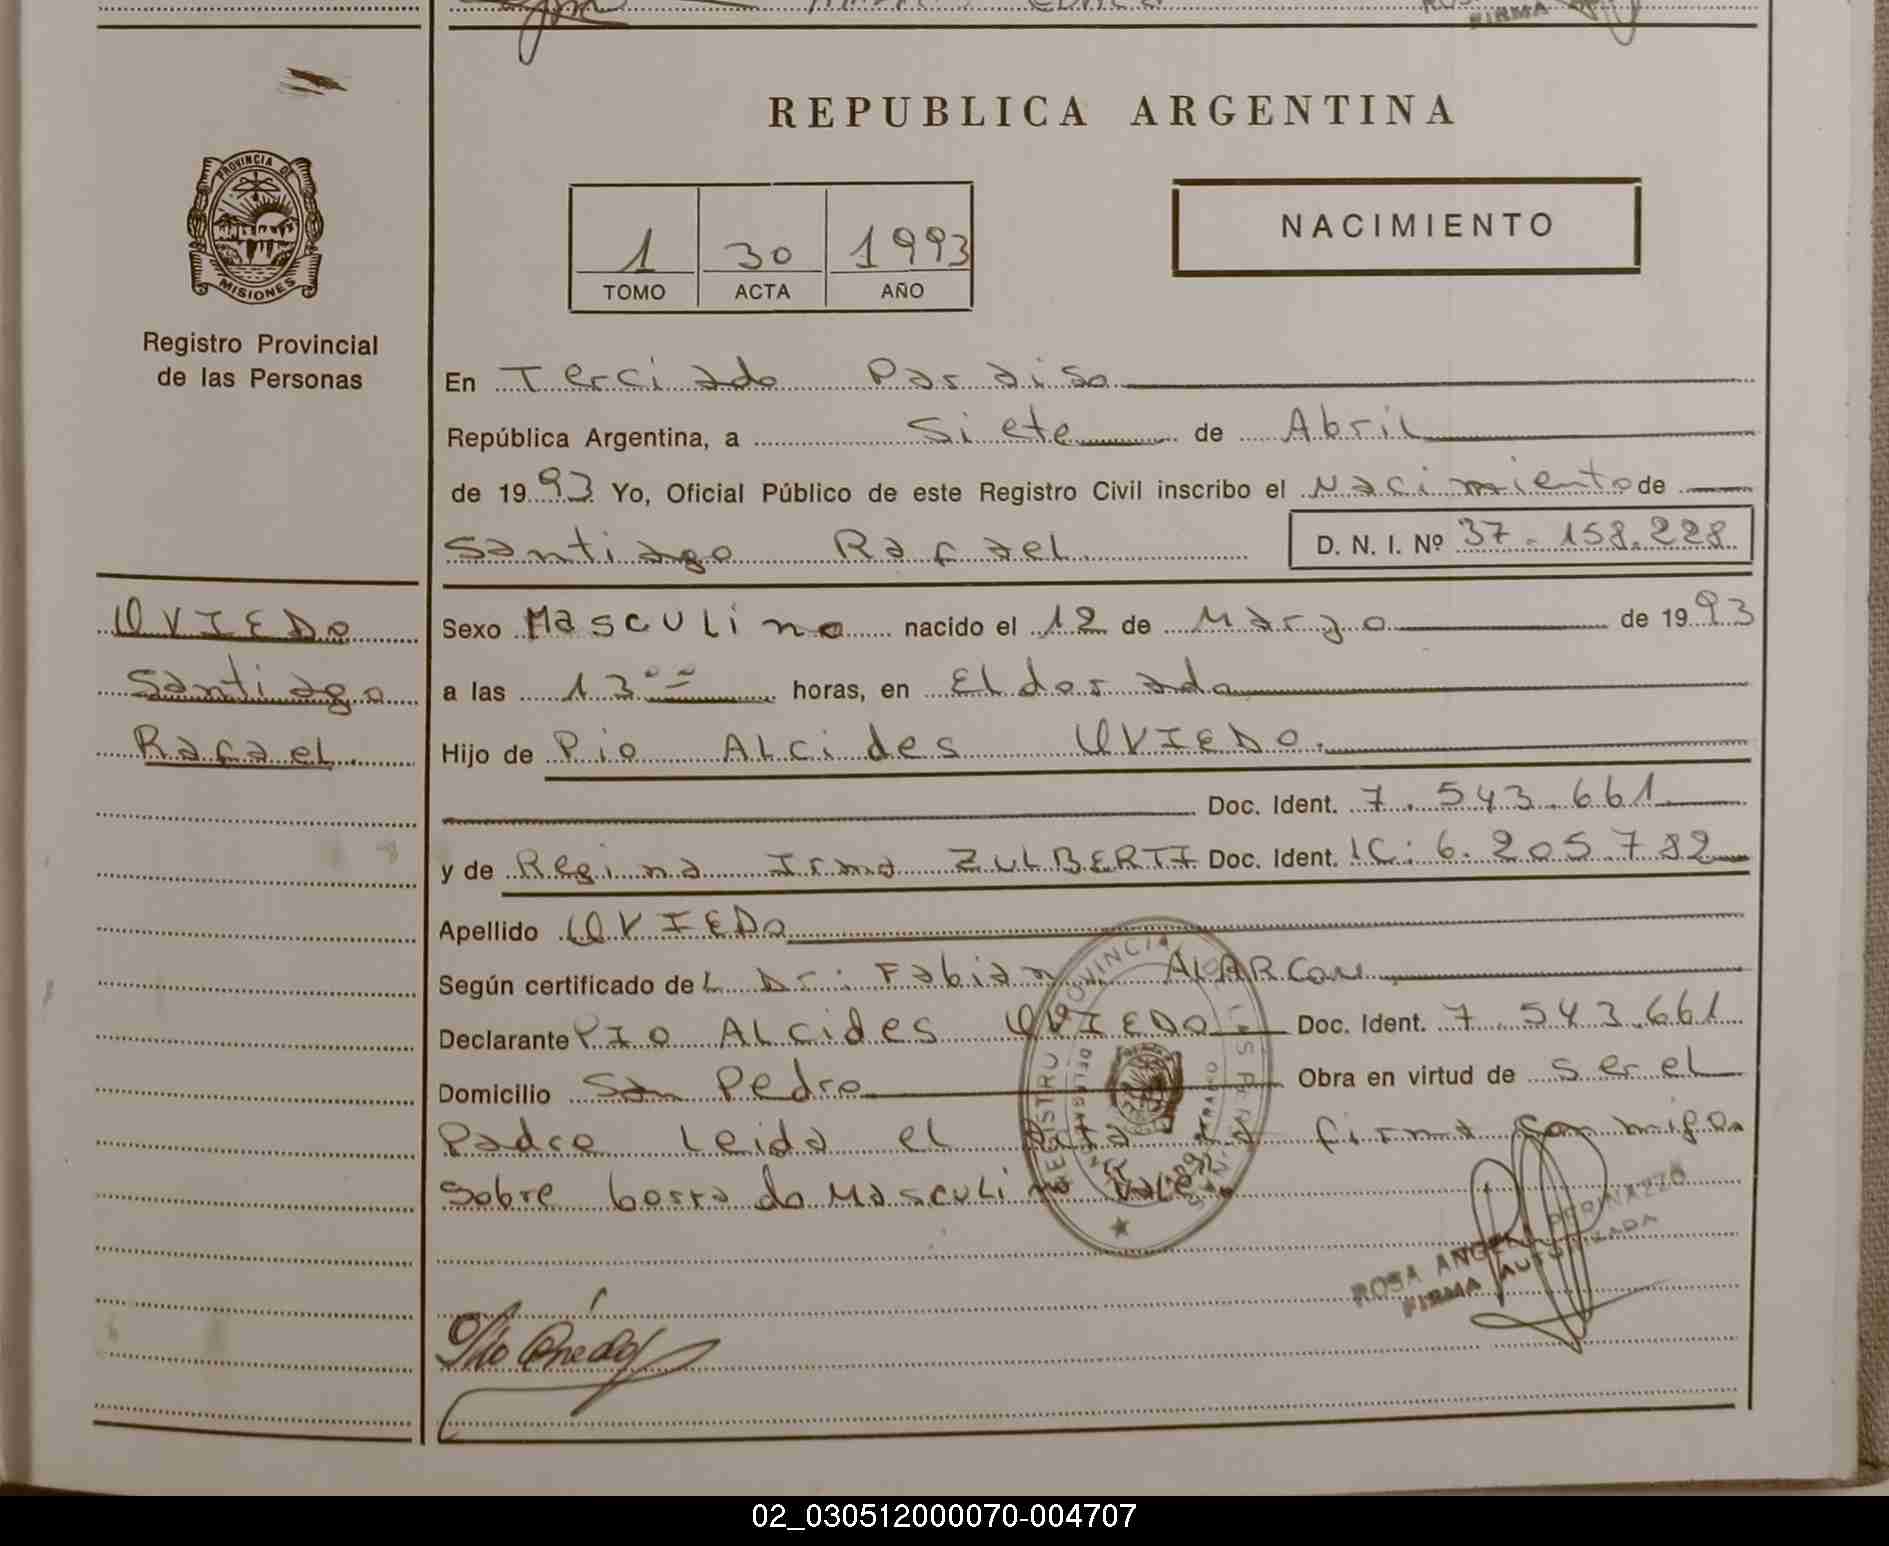 FIRMA
REPUBLICA ARGENTINA
PROVINCIA DE
MISIONES
Registro Provincial
de las Personas
1 30 1993
TOMO ACTA AÑO
NACIMIENTO
En Terciado Paraiso
República Argentina, a Siete de Abril
de 1993 Yo, Oficial Público de este Registro Civil inscribo el Nacimiento de
Santiago Rafael D. N. I. Nº 37.158.228
OVIEDO
Santiago
Rafael.
Sexo Masculino nacido el 12 de Marzo de 1993
a las 13 00 horas, en Eldorado
Hijo de Pio ALcides OVIEDO.
Doc. Ident. 7.543.661
y de Regina Irma ZULBERTI Doc. Ident. LC: 6.205.782
Apellido OVIEDO
Según certificado deL Dr: Fabian ALARCON
Declarante PIO ALcides OVIEDO Doc. Ident. 7.543.661
Domicilio San Pedro Obra en virtud de ser el
Padre Leida el Acta La firma conmigo
Sobre borrado Masculino VALE
ROSA ANGELA PERINAZZO
FIRMA AUTORIZADA
Pio Oviedo
02_030512000070-004707